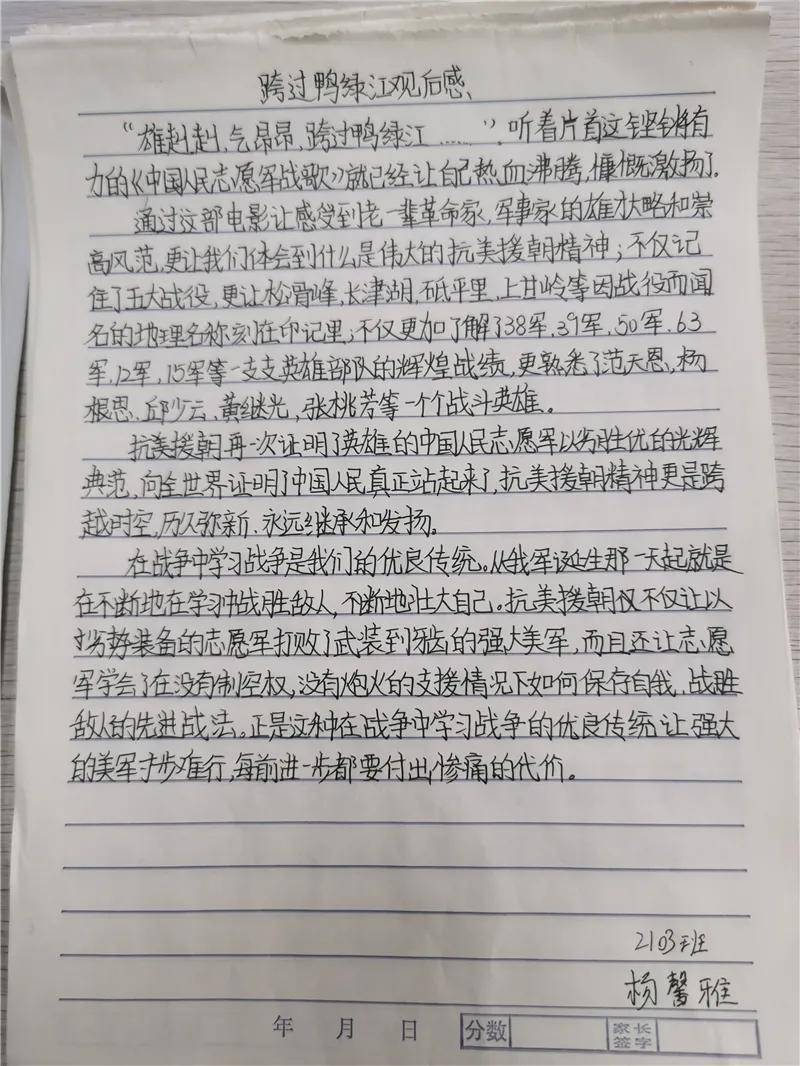 跨过鸭绿江观后感、
“雄赳赳,气昂昂,跨过鸭绿江……”,听着片首这铿锵有
力的《中国人民志愿军战歌》就已经让自己热血沸腾,慷慨激扬了。
通过这部电影让感受到老一辈革命家,军事家的雄才大略和崇
高风范,更让我们体会到什么是伟大的抗美援朝精神;不仅记
住了五大战役,更让松骨峰,长津湖,砥平里,上甘岭等因战役而闻
名的地理名称刻在印记里;不仅更加了解了38军,39军,50军,63
军,12军,15军等一支支英雄部队的辉煌战绩,更熟悉了范天恩,杨
根思、邱少云、黄继光,张桃芳等一个个战斗英雄。
抗美援朝再一次证明了英雄的中国人民志愿军以劣胜优的光辉
典范,向全世界证明了中国人民真正站起来了,抗美援朝精神更是跨
越时空,历久弥新、永远继承和发扬。
在战争中学习战争是我们的优良传统。从我军诞生那一天起就是
在不断地在学习中战胜敌人,不断地壮大自己。抗美援朝仅不仅让以
劣势装备的志愿军打败了武装到牙齿的强大美军,而且还让志愿
军学会了在没有制空权,没有炮火的支援情况下如何保存自我,战胜
敌人的先进战法。正是这种在战争中学习战争的优良传统让强大
的美军寸步难行,每前进一步都要付出惨痛的代价。
2103班
杨馨雅
年 月 日 分数 家长签字